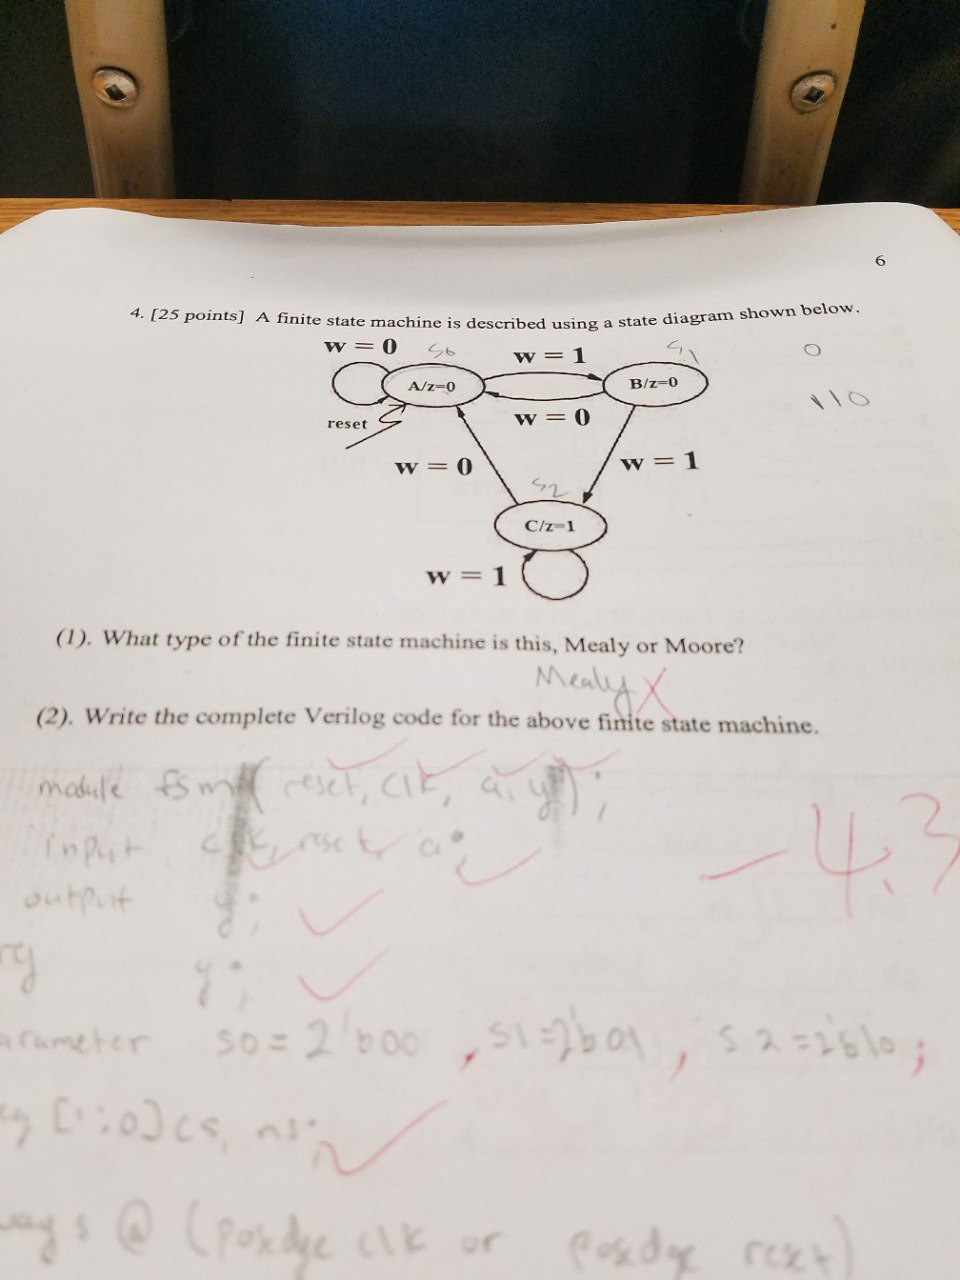 6
4. [25 points] A finite state machine is described using a state diagram shown below.
w = 0 S0 w = 1 S1 0
A/z=0 B/z=0
110
reset w = 0
w = 0 w = 1
S2
C/z=1
w = 1
(1). What type of the finite state machine is this, Mealy or Moore?
Mealy X
(2). Write the complete Verilog code for the above finite state machine.
module fsm( reset, clk, a, y);
input clk, reset, a;
output y;
- 4.3
y;
s0 = 2'b00 , s1=2'b01 , s2=2'b10 ;
[1:0] cs, ns;
@ (posedge clk or posedge reset)